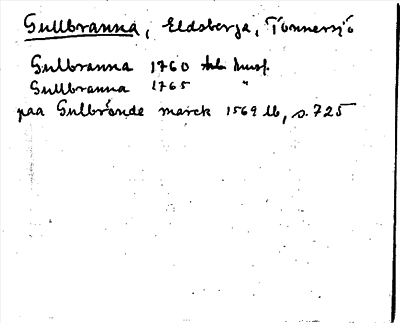 Gullbranna, Eldsberga, Tönnersjö
Gullbranna 1760
Gullbranna 1765 "
paa Gulbrönde marck 1569 lb, s. 725